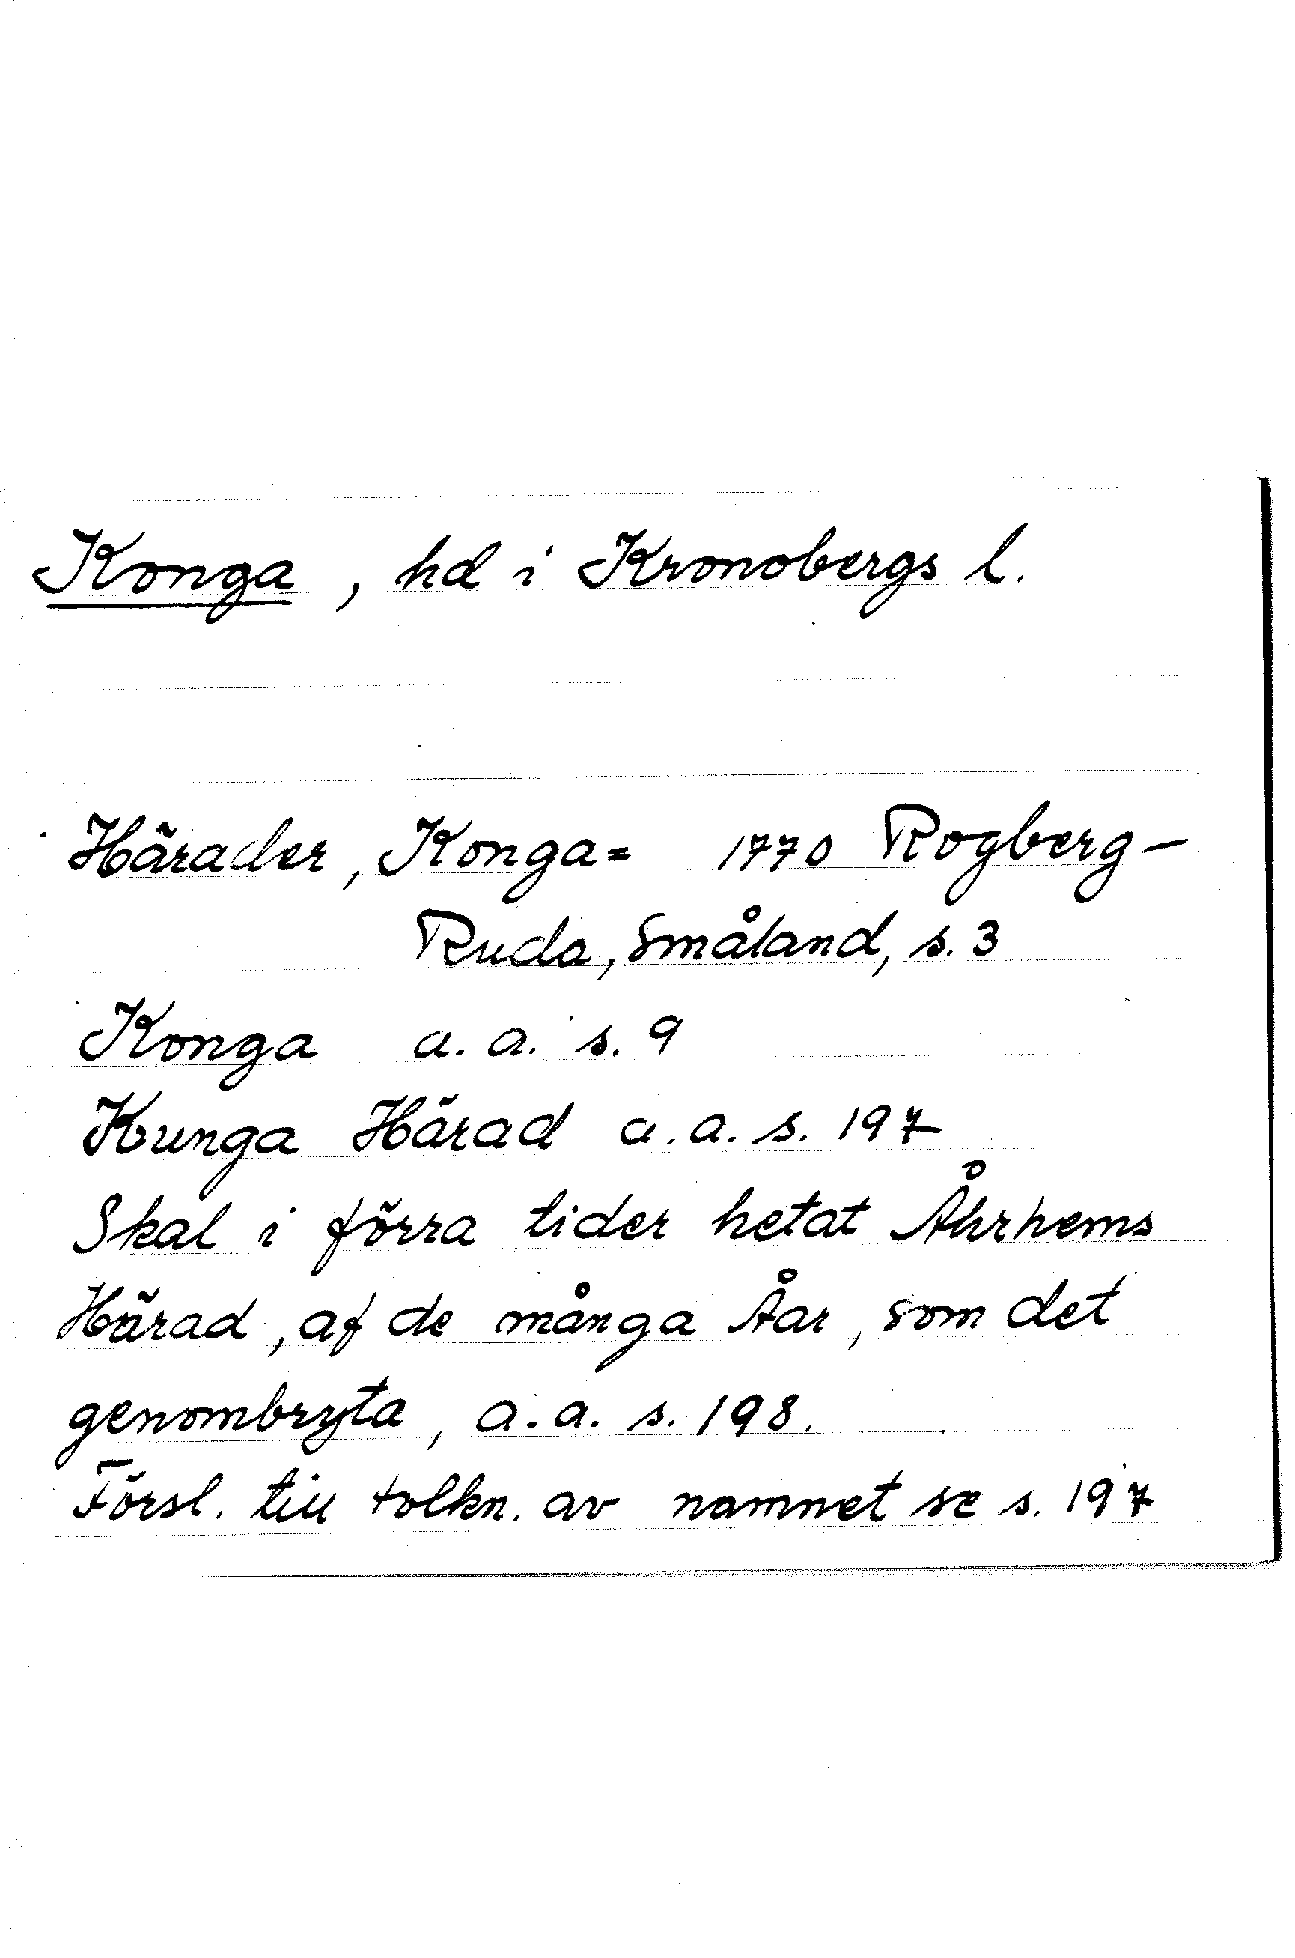 Konga, hd i Kronobergs l.
Härader, Konga= 1770 Rogberg-
Ruda, Småland, s. 3
Konga a.a. s. 9
Kunga Härad a.a. s. 197
Skal i förra tider hetat Åhrhems
Härad, af de många Åar, som det
genombryta, a.a. s. 198.
Försl. till tolkn. av namnet se s. 197